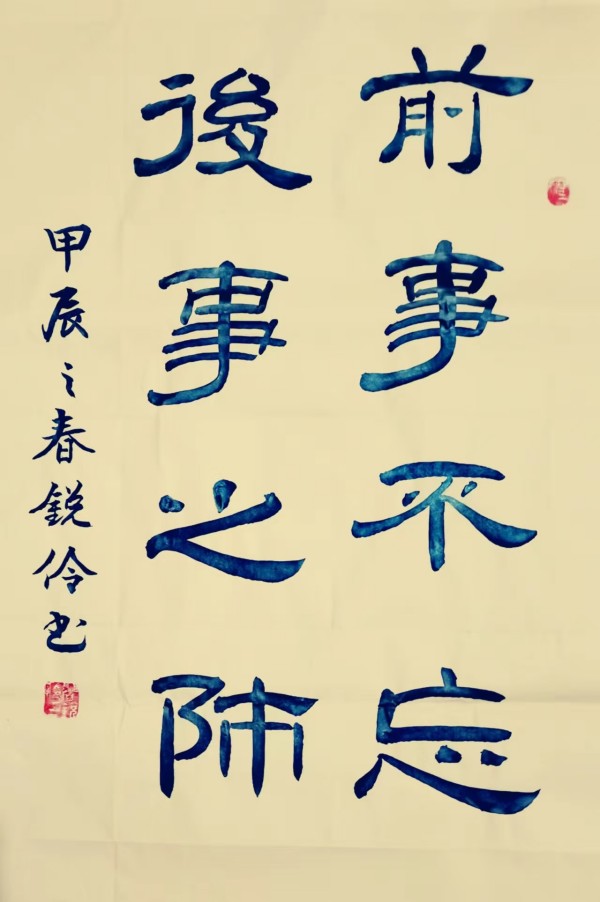 前事不忘
後事之師
甲辰之春鋭伶书